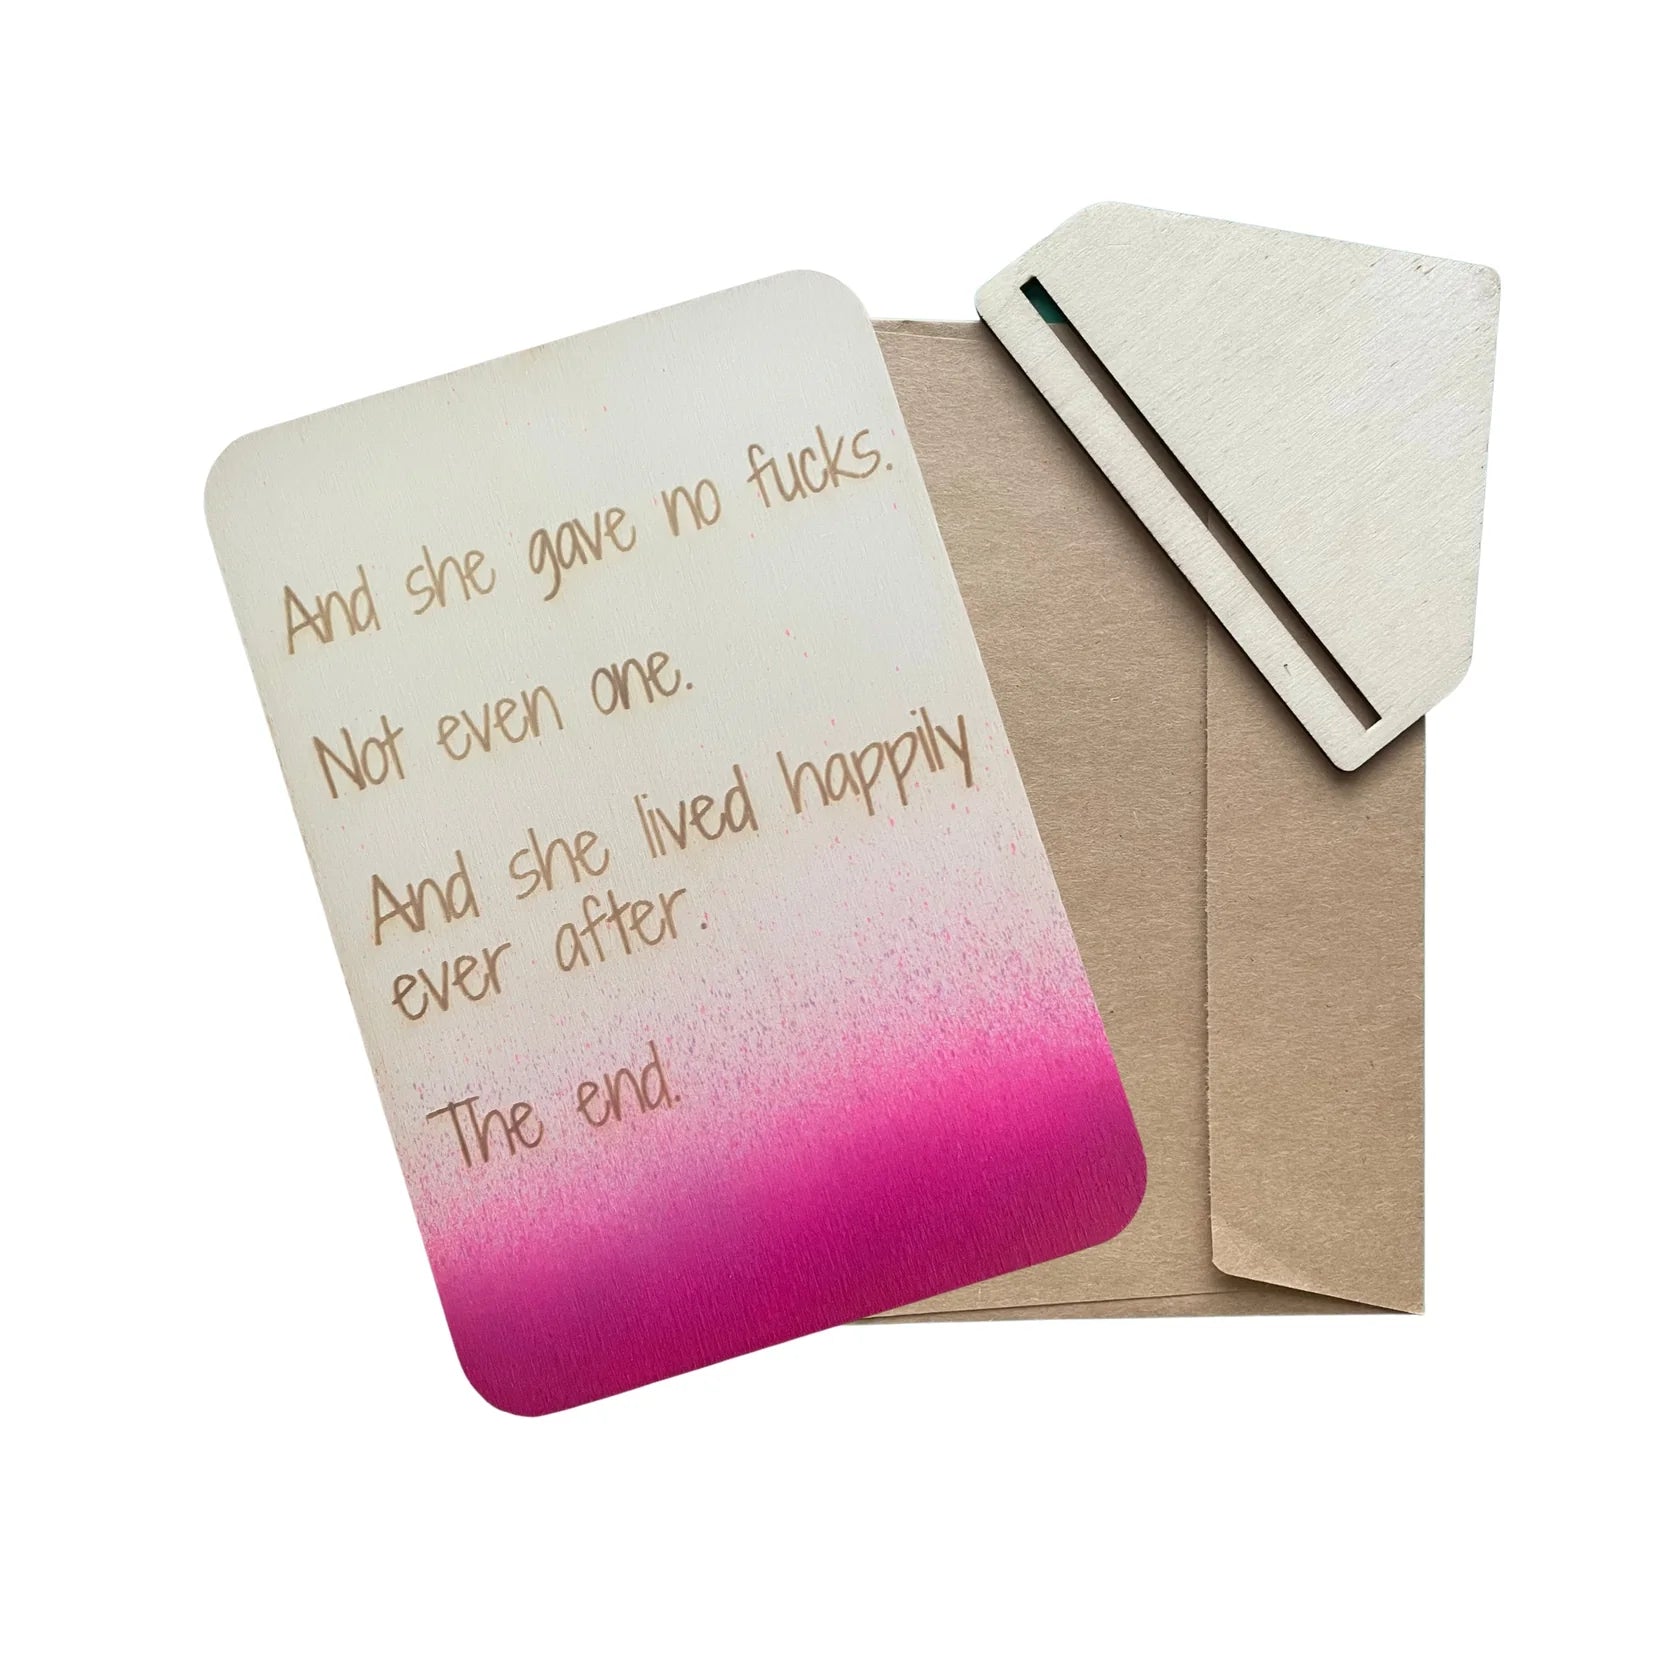 And she gave no fucks.
Not even one.
And she lived happily
ever after.
The end.